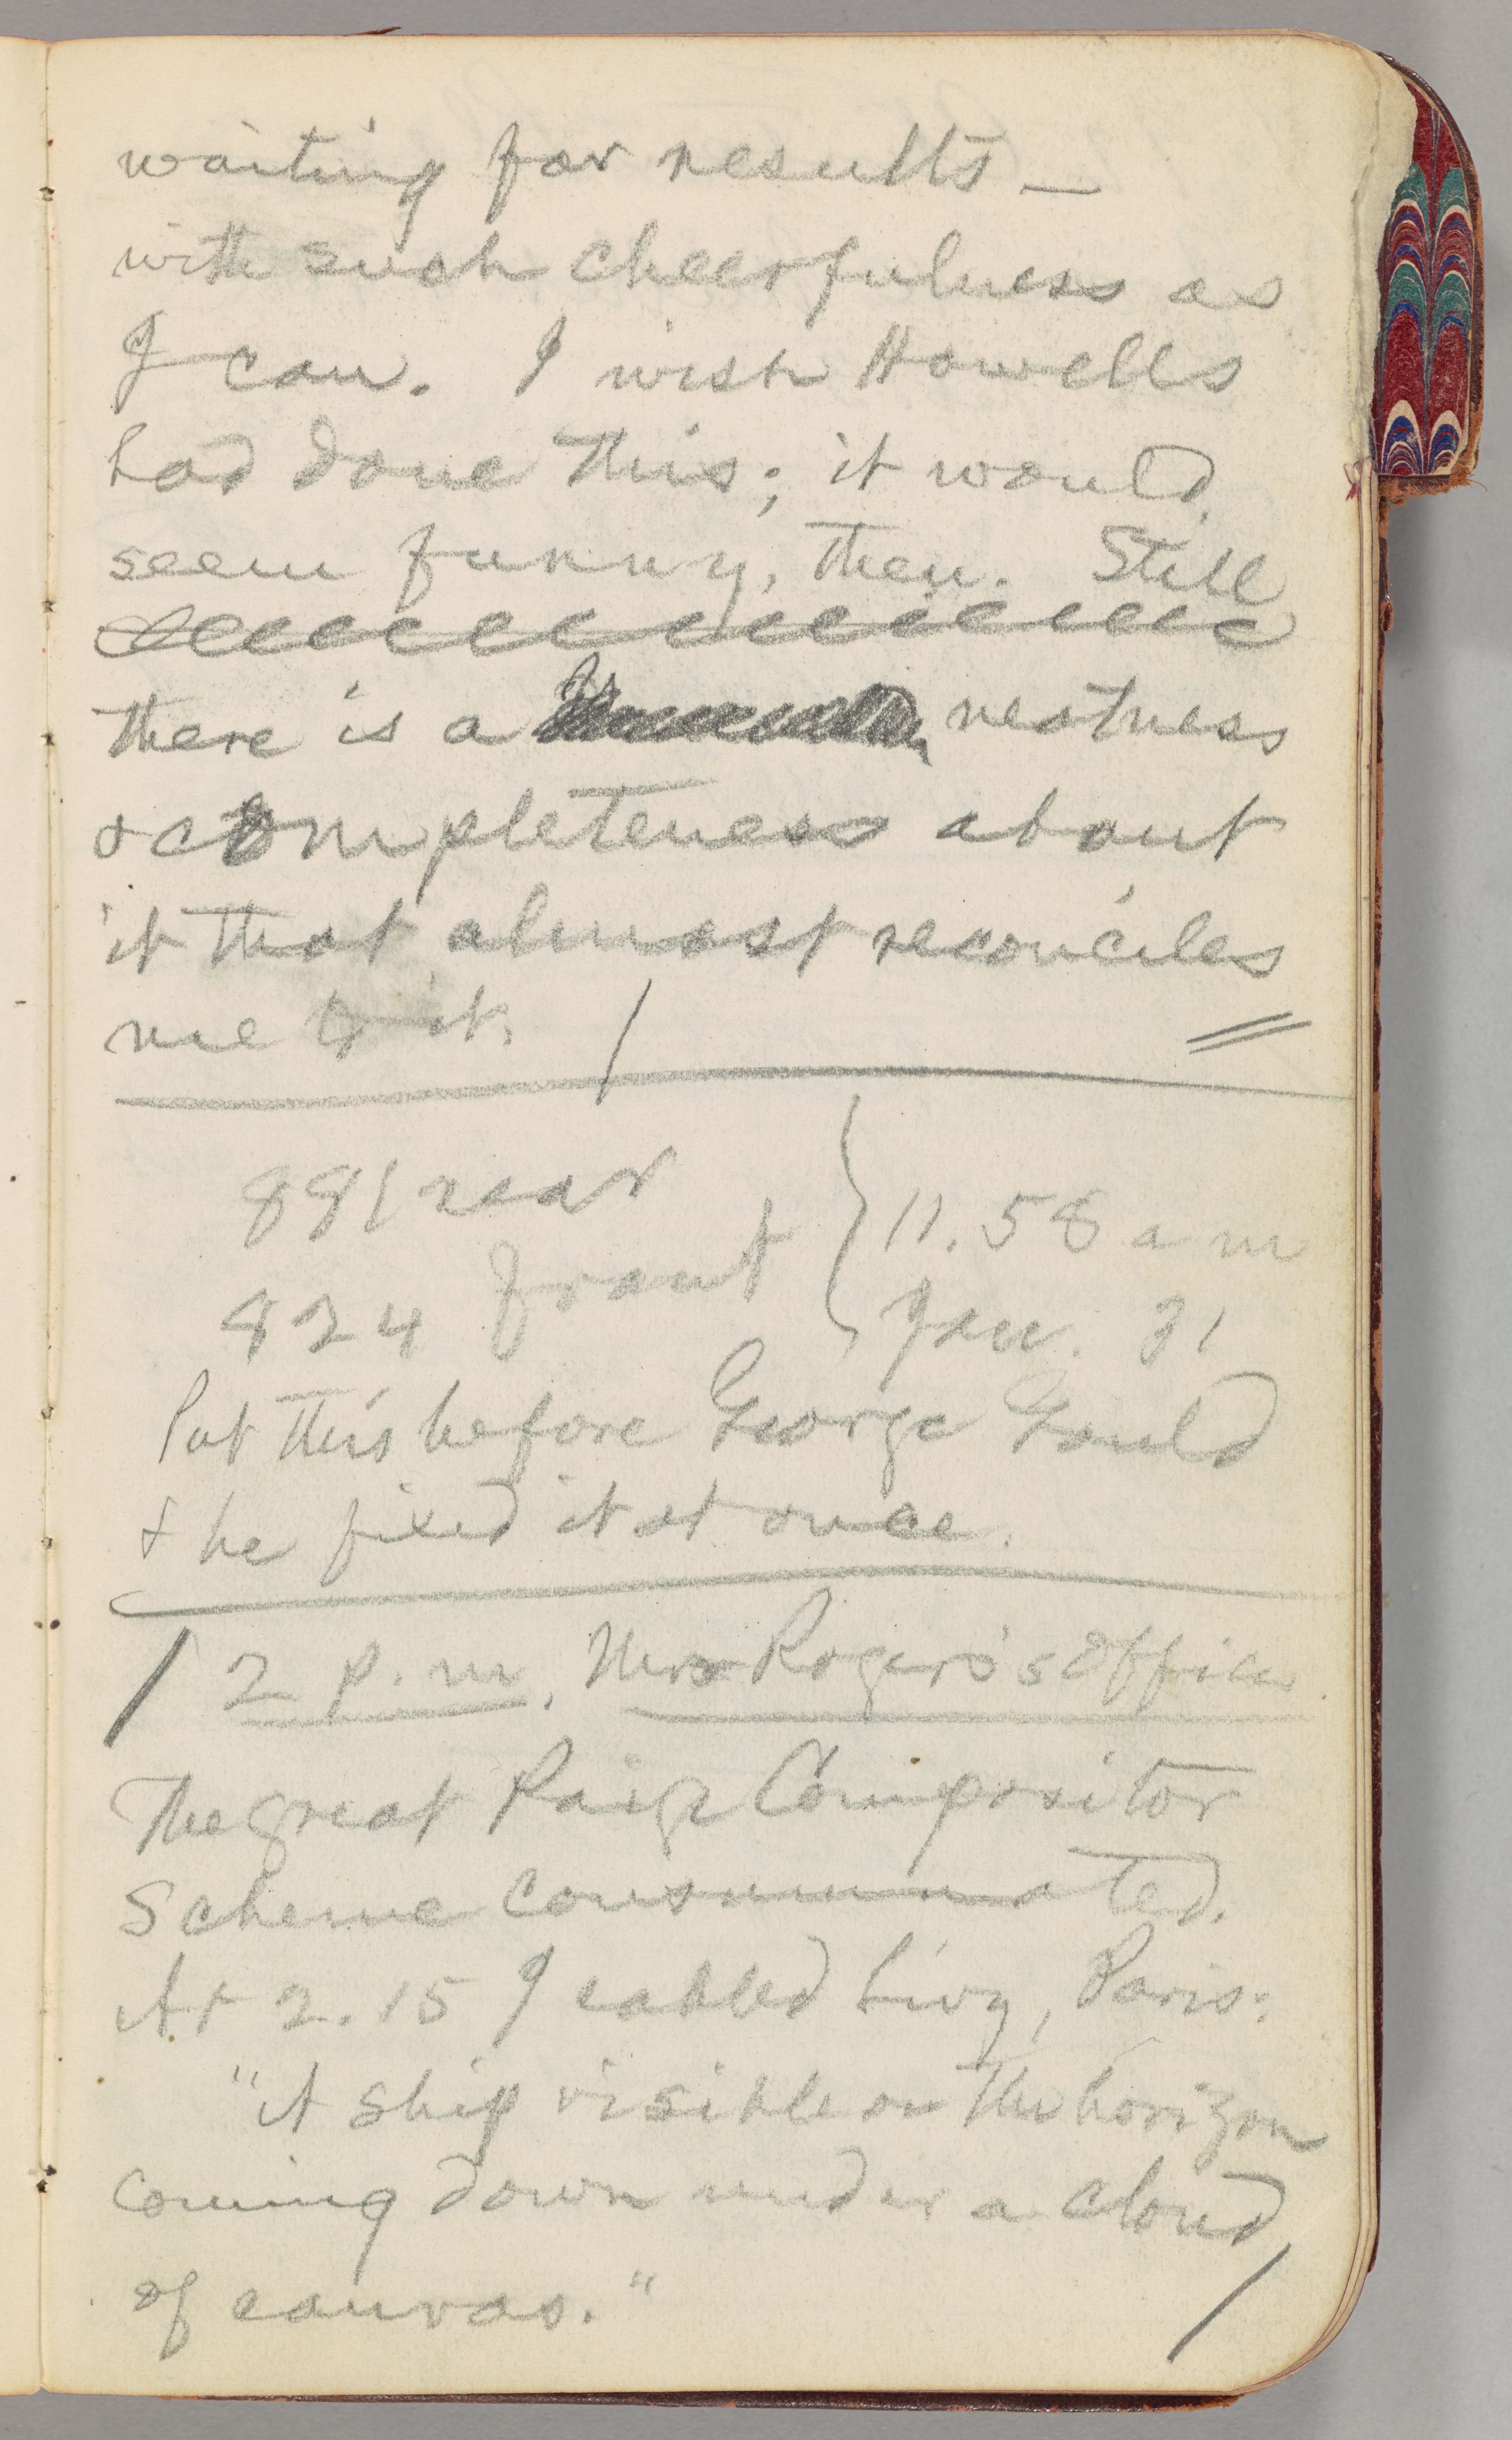 waiting for results —
with such cheerfulness as
I can. I wish Howells
had done this; it would
seem funny, then. Still
there is a neatness
& completeness about
it that almost reconciles
me to it.
891 rear
824 front } 11.58 a m
Jan. 31
Put this before George Gould
& he fixed it at once.
2 p.m, Mr Rogers's office
The great Paige Compositor
Scheme consummated.
At 2.15 I cabled Livy, Paris:
"A ship visible on the horizon
coming down under a cloud
of canvas."